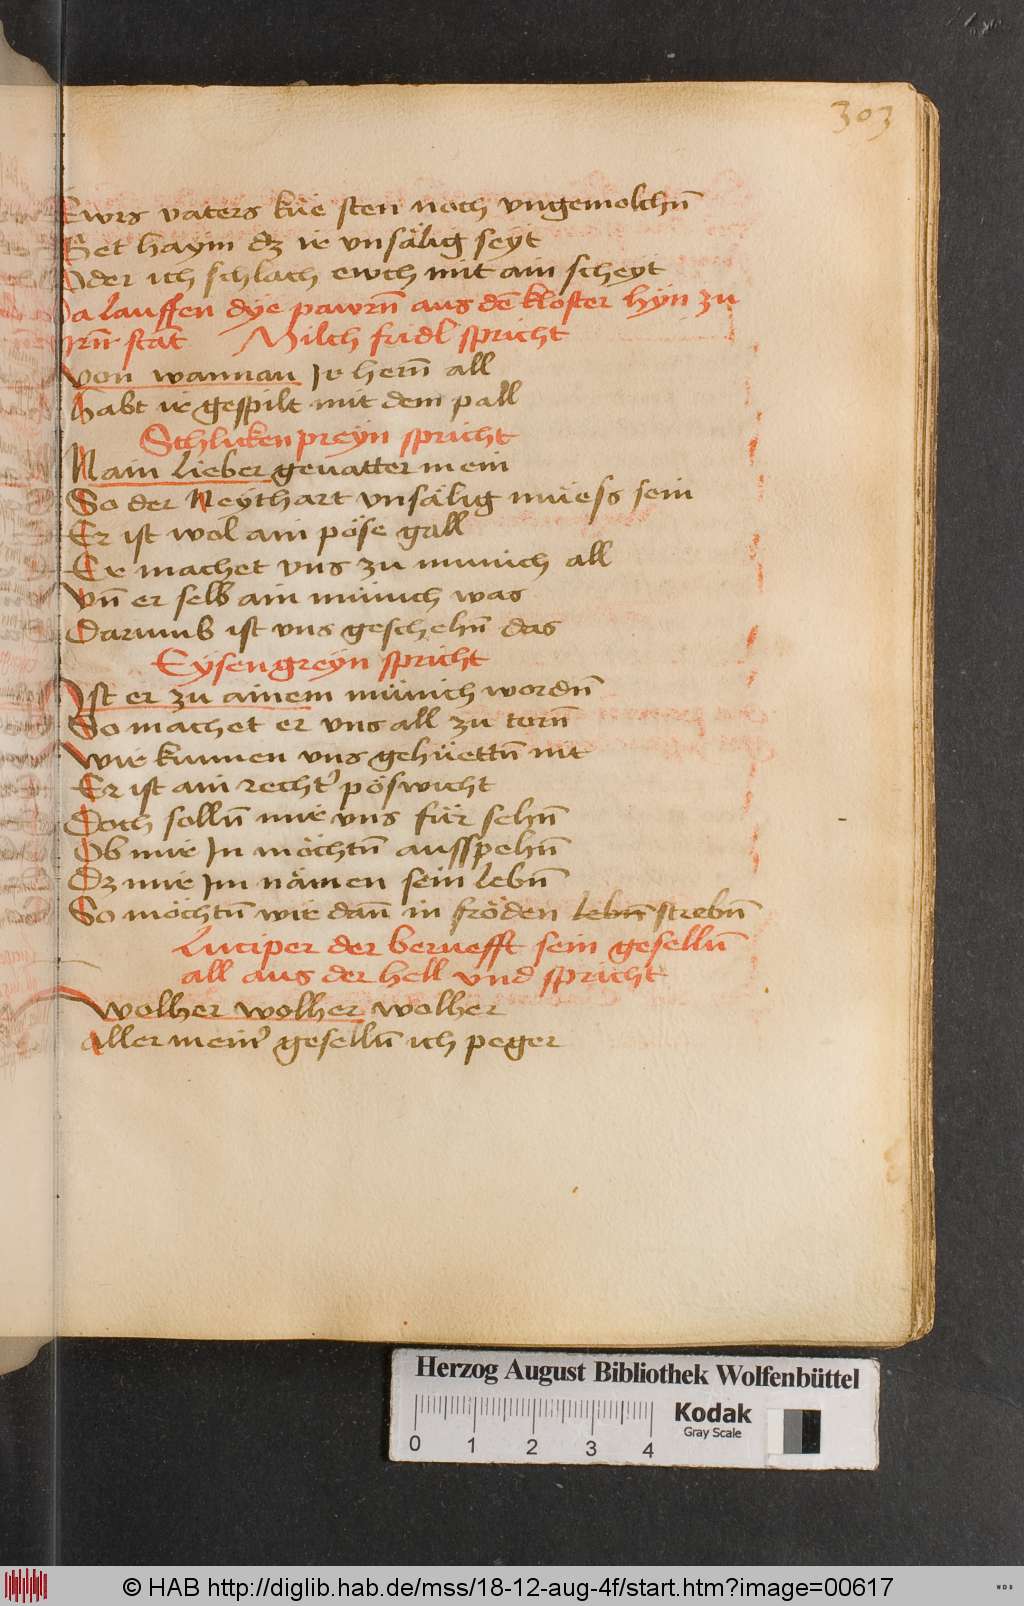 303
Ewrs vaters küe sten noch vngemolchn̄
Get haym dz ir vnsälig seyt
Oder ich schlach ewch mit ain scheyt
Da lauffen dye pawrn̄ aus dē kloster hyn zu
irn̄ stat Milch fridl spricht
Von wannan Ir hern̄ all
Habt ir gespilt mit dem pall
Schlickenpreyn spricht
Nain lieber geuatter mein
So der Neythart vnsälig müess sein
Er ist wol ain pöse gall
Er machet vns zu munich all
Vn̄ er selb ain münich was
Darumb ist vns geschehn̄ das
Eysengreyn spricht
Ist er zu ainem münich wordn̄
So machet er vns all zu torn̄
Wir kunnen vns gehüettn̄ nit
Er ist ain recht' pöswicht
Doch solln̄ mir vns für sehn̄
Ob mir In möchtn̄ ausspehn̄
Dz mir Im nämen sein lebn̄
So möchtn̄ wir dan̄ in fröden lebn̄ strebn̄
Luciper der beruefft sein geselln̄
all aus der hell vnd spricht
Wolher wolher wolher
Aller mein' geselln̄ ich peger
Herzog August Bibliothek Wolfenbüttel
0 1 2 3 4
Kodak
Gray Scale
© HAB http://diglib.hab.de/mss/18-12-aug-4f/start.htm?image=00617